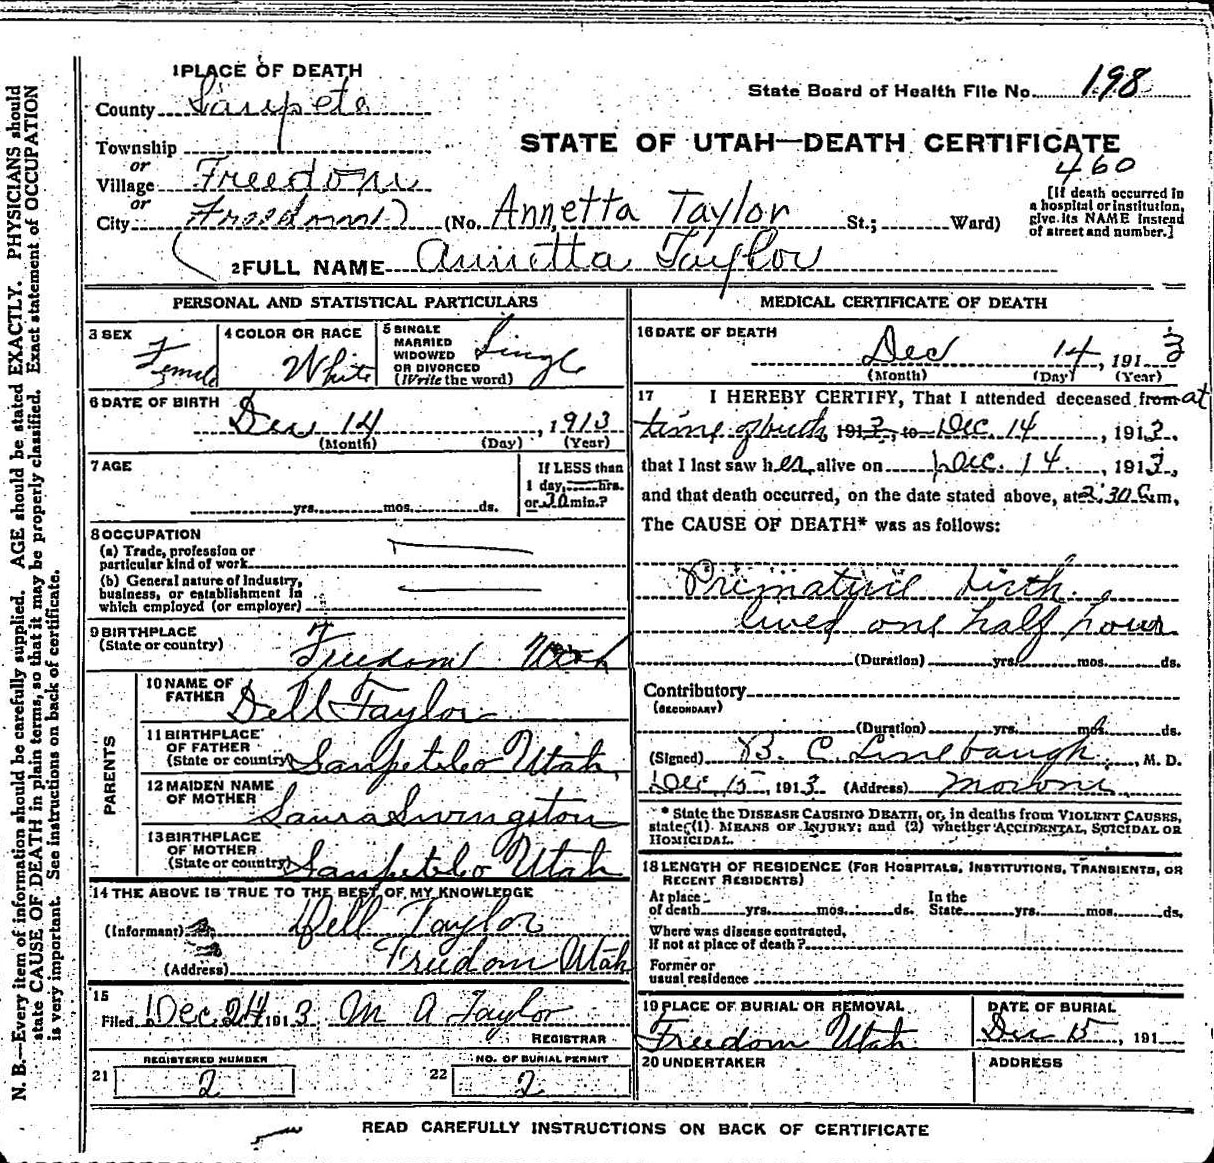 1 PLACE OF DEATH
County Sanpete
State Board of Health File No. 198
STATE OF UTAH—DEATH CERTIFICATE
460
Township
or
Village Freedom
or
City Freedom (No. Annetta Taylor St.; Ward)
[If death occurred in
a hospital or institution,
give its NAME instead
of street and number.]
2 FULL NAME Annetta Taylor
PERSONAL AND STATISTICAL PARTICULARS
3 SEX Female
4 COLOR OR RACE White
5 SINGLE
MARRIED
WIDOWED
OR DIVORCED
(Write the word) Single
6 DATE OF BIRTH
Dec 14, 1913
(Month) (Day) (Year)
7 AGE
yrs. mos. ds.
If LESS than
1 day, hrs.
or 30 min.?
8 OCCUPATION
(a) Trade, profession or
particular kind of work
(b) General nature of industry,
business, or establishment in
which employed (or employer)
9 BIRTHPLACE
(State or country) Freedom Utah
PARENTS
10 NAME OF
FATHER Dell Taylor
11 BIRTHPLACE
OF FATHER
(State or country) Sanpete Co Utah
12 MAIDEN NAME
OF MOTHER Laura Livingston
13 BIRTHPLACE
OF MOTHER
(State or country) Sanpete Co Utah
14 THE ABOVE IS TRUE TO THE BEST OF MY KNOWLEDGE
(Informant) Dell Taylor
(Address) Freedom Utah
15
Filed Dec. 24 1913 M A Taylor
REGISTRAR
REGISTERED NUMBER
21 2
NO. OF BURIAL PERMIT
22 2
MEDICAL CERTIFICATE OF DEATH
16 DATE OF DEATH
Dec 14, 1913
(Month) (Day) (Year)
17 I HEREBY CERTIFY, That I attended deceased from at
time of birth, 1913, to Dec. 14, 1913,
that I last saw her alive on Dec. 14, 1913,
and that death occurred, on the date stated above, at 2:30 a m.
The CAUSE OF DEATH* was as follows:
Primature birth.
lived one half hour
(Duration) yrs. mos. ds.
Contributory
(SECONDARY)
(Duration) yrs. mos. ds.
(Signed) B. C. Linebaugh, M. D.
Dec 15, 1913 (Address) Moroni
* State the DISEASE CAUSING DEATH, or, in deaths from VIOLENT CAUSES,
state (1) MEANS OF INJURY; and (2) whether ACCIDENTAL, SUICIDAL OR
HOMICIDAL.
18 LENGTH OF RESIDENCE (FOR HOSPITALS, INSTITUTIONS, TRANSIENTS, OR
RECENT RESIDENTS)
At place
of death yrs. mos. ds. In the
State yrs. mos. ds.
Where was disease contracted,
if not at place of death?
Former or
usual residence
19 PLACE OF BURIAL OR REMOVAL
Freedom Utah
DATE OF BURIAL
Dec 15, 191
20 UNDERTAKER
ADDRESS
READ CAREFULLY INSTRUCTIONS ON BACK OF CERTIFICATE
N. B.—Every item of information should be carefully supplied. AGE should be stated EXACTLY. PHYSICIANS should
state CAUSE OF DEATH in plain terms, so that it may be properly classified. Exact statement of OCCUPATION
is very important. See instructions on back of certificate.